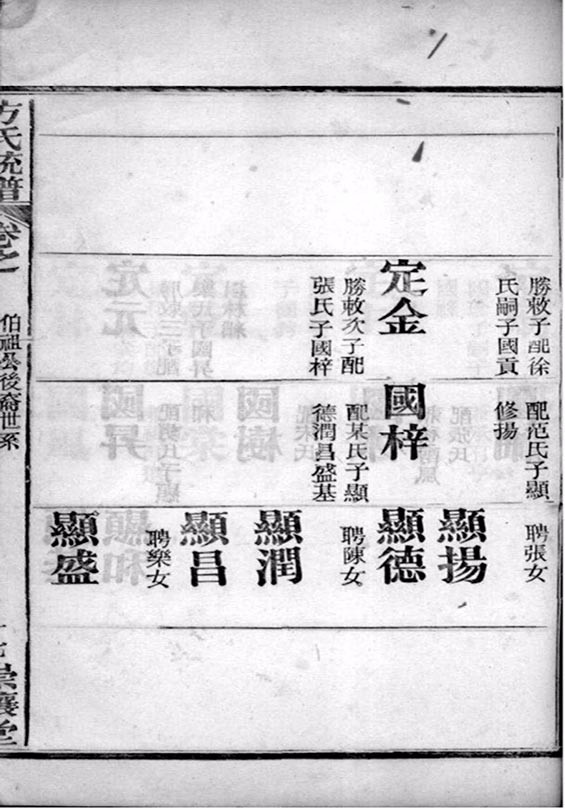 勝敕子配徐
氏嗣子國貢
定金
勝敕次子配
張氏子國梓
配范氏子顯
修揚
國梓
配某氏子顯
德潤昌盛基
聘張女
顯揚
顯德
聘陳女
顯潤
顯昌
聘樂女
顯盛
方氏統譜
卷之一
伯祖公後裔世系